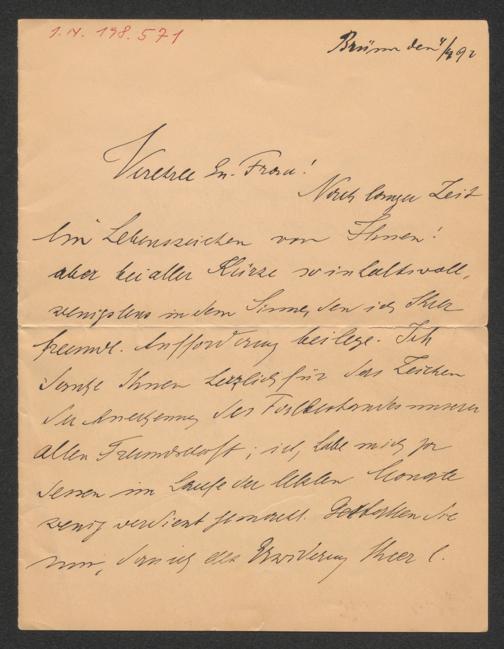 I.N. 198.571
Brünn den 4/4 92
Verehrte Gn. Frau!
Nach langer Zeit
Ein Lebenszeichen von Ihnen!
aber bei aller Kürze so inhaltsvoll,
wenigstens in dem Sinne, den ich Ihrer
freundl. Aufforderung beilege. Ich
danke Ihnen herzlich für das Zeichen
der Anerkennung des Fortbestandes unserer
alten Freundschaft; ich habe mich ja
dessen im Laufe der letzten Monate
wenig verdient gemacht. Gestatten Sie
nun, daß ich als Erwiderung Ihrer l.